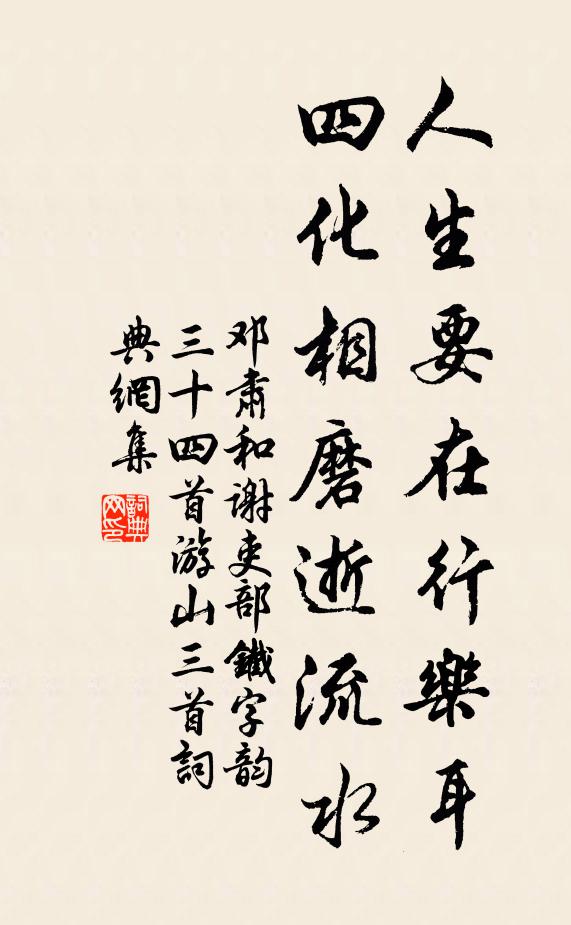 人生要在行樂耳
四化相磨逝流水
邓肅和谢吏部鐵字韵
三十四首游山三首詞
典網集
詞典
网印